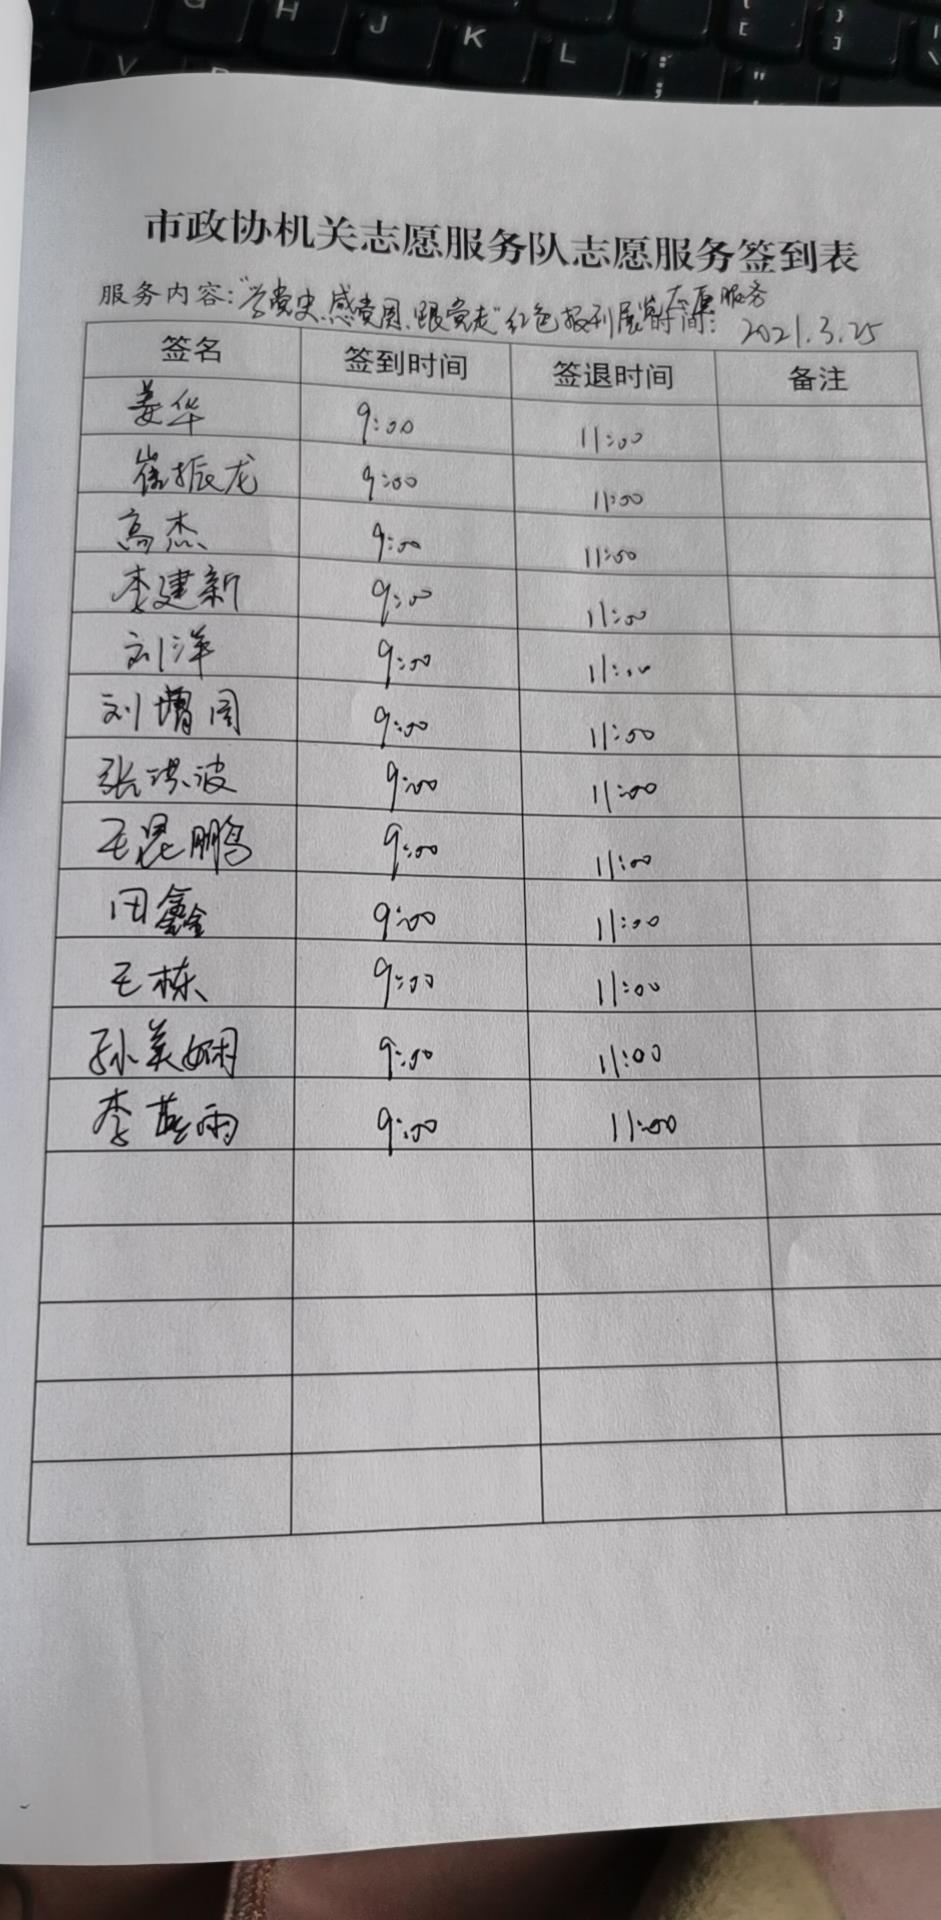 G H J K L : ; " ' { [ } ] | \
V
市政协机关志愿服务队志愿服务签到表
服务内容:“学党史、感党恩、跟党走”红色报刊展览志愿服务 时间: 2021.3.25
签名 签到时间 签退时间 备注
姜华 9:00 11:00
崔振龙 9:00 11:00
高杰 9:00 11:00
李建新 9:00 11:00
刘洋 9:00 11:00
刘增国 9:00 11:00
张洪波 9:00 11:00
王昆鹏 9:00 11:00
田鑫 9:00 11:00
王栋 9:00 11:00
孙美娴 9:00 11:00
李燕雨 9:00 11:00